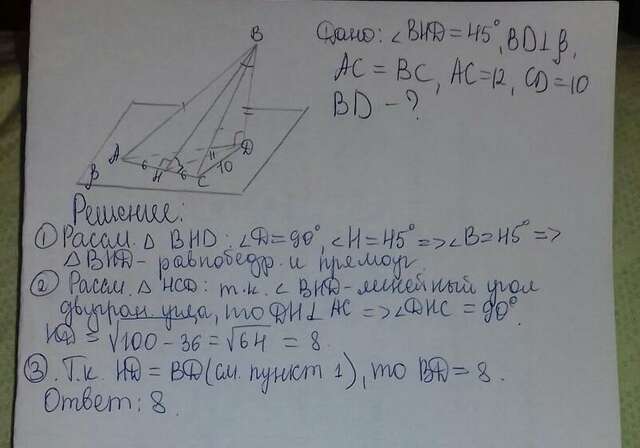 Дано: ∠BHD = 45°, BD⊥β,
AC = BC, AC=12, CD=10
BD - ?
B
A
6
H
6
C
10
D
β
Решение:
① Рассм. △ BHD: ∠D=90°, ∠H=45° => ∠B=45° =>
△BHD- равнобедр. и прямоуг.
② Рассм. △ HCD: т.к. ∠ BHD-линейный угол
двугран. угла, то DH⊥ AC => ∠DHC = 90°.
HD = √100 - 36 = √64 = 8.
③. Т.к. HD = BD (см. пункт 1), то BD = 8.
Ответ: 8.